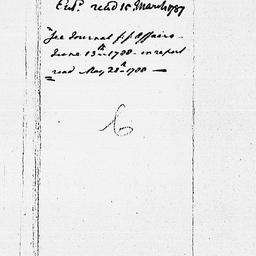 Ent.d read 15 March 1787
See Journal f.f Affairs
June 13th 1788 - on report
read May 28th 1788 —
6